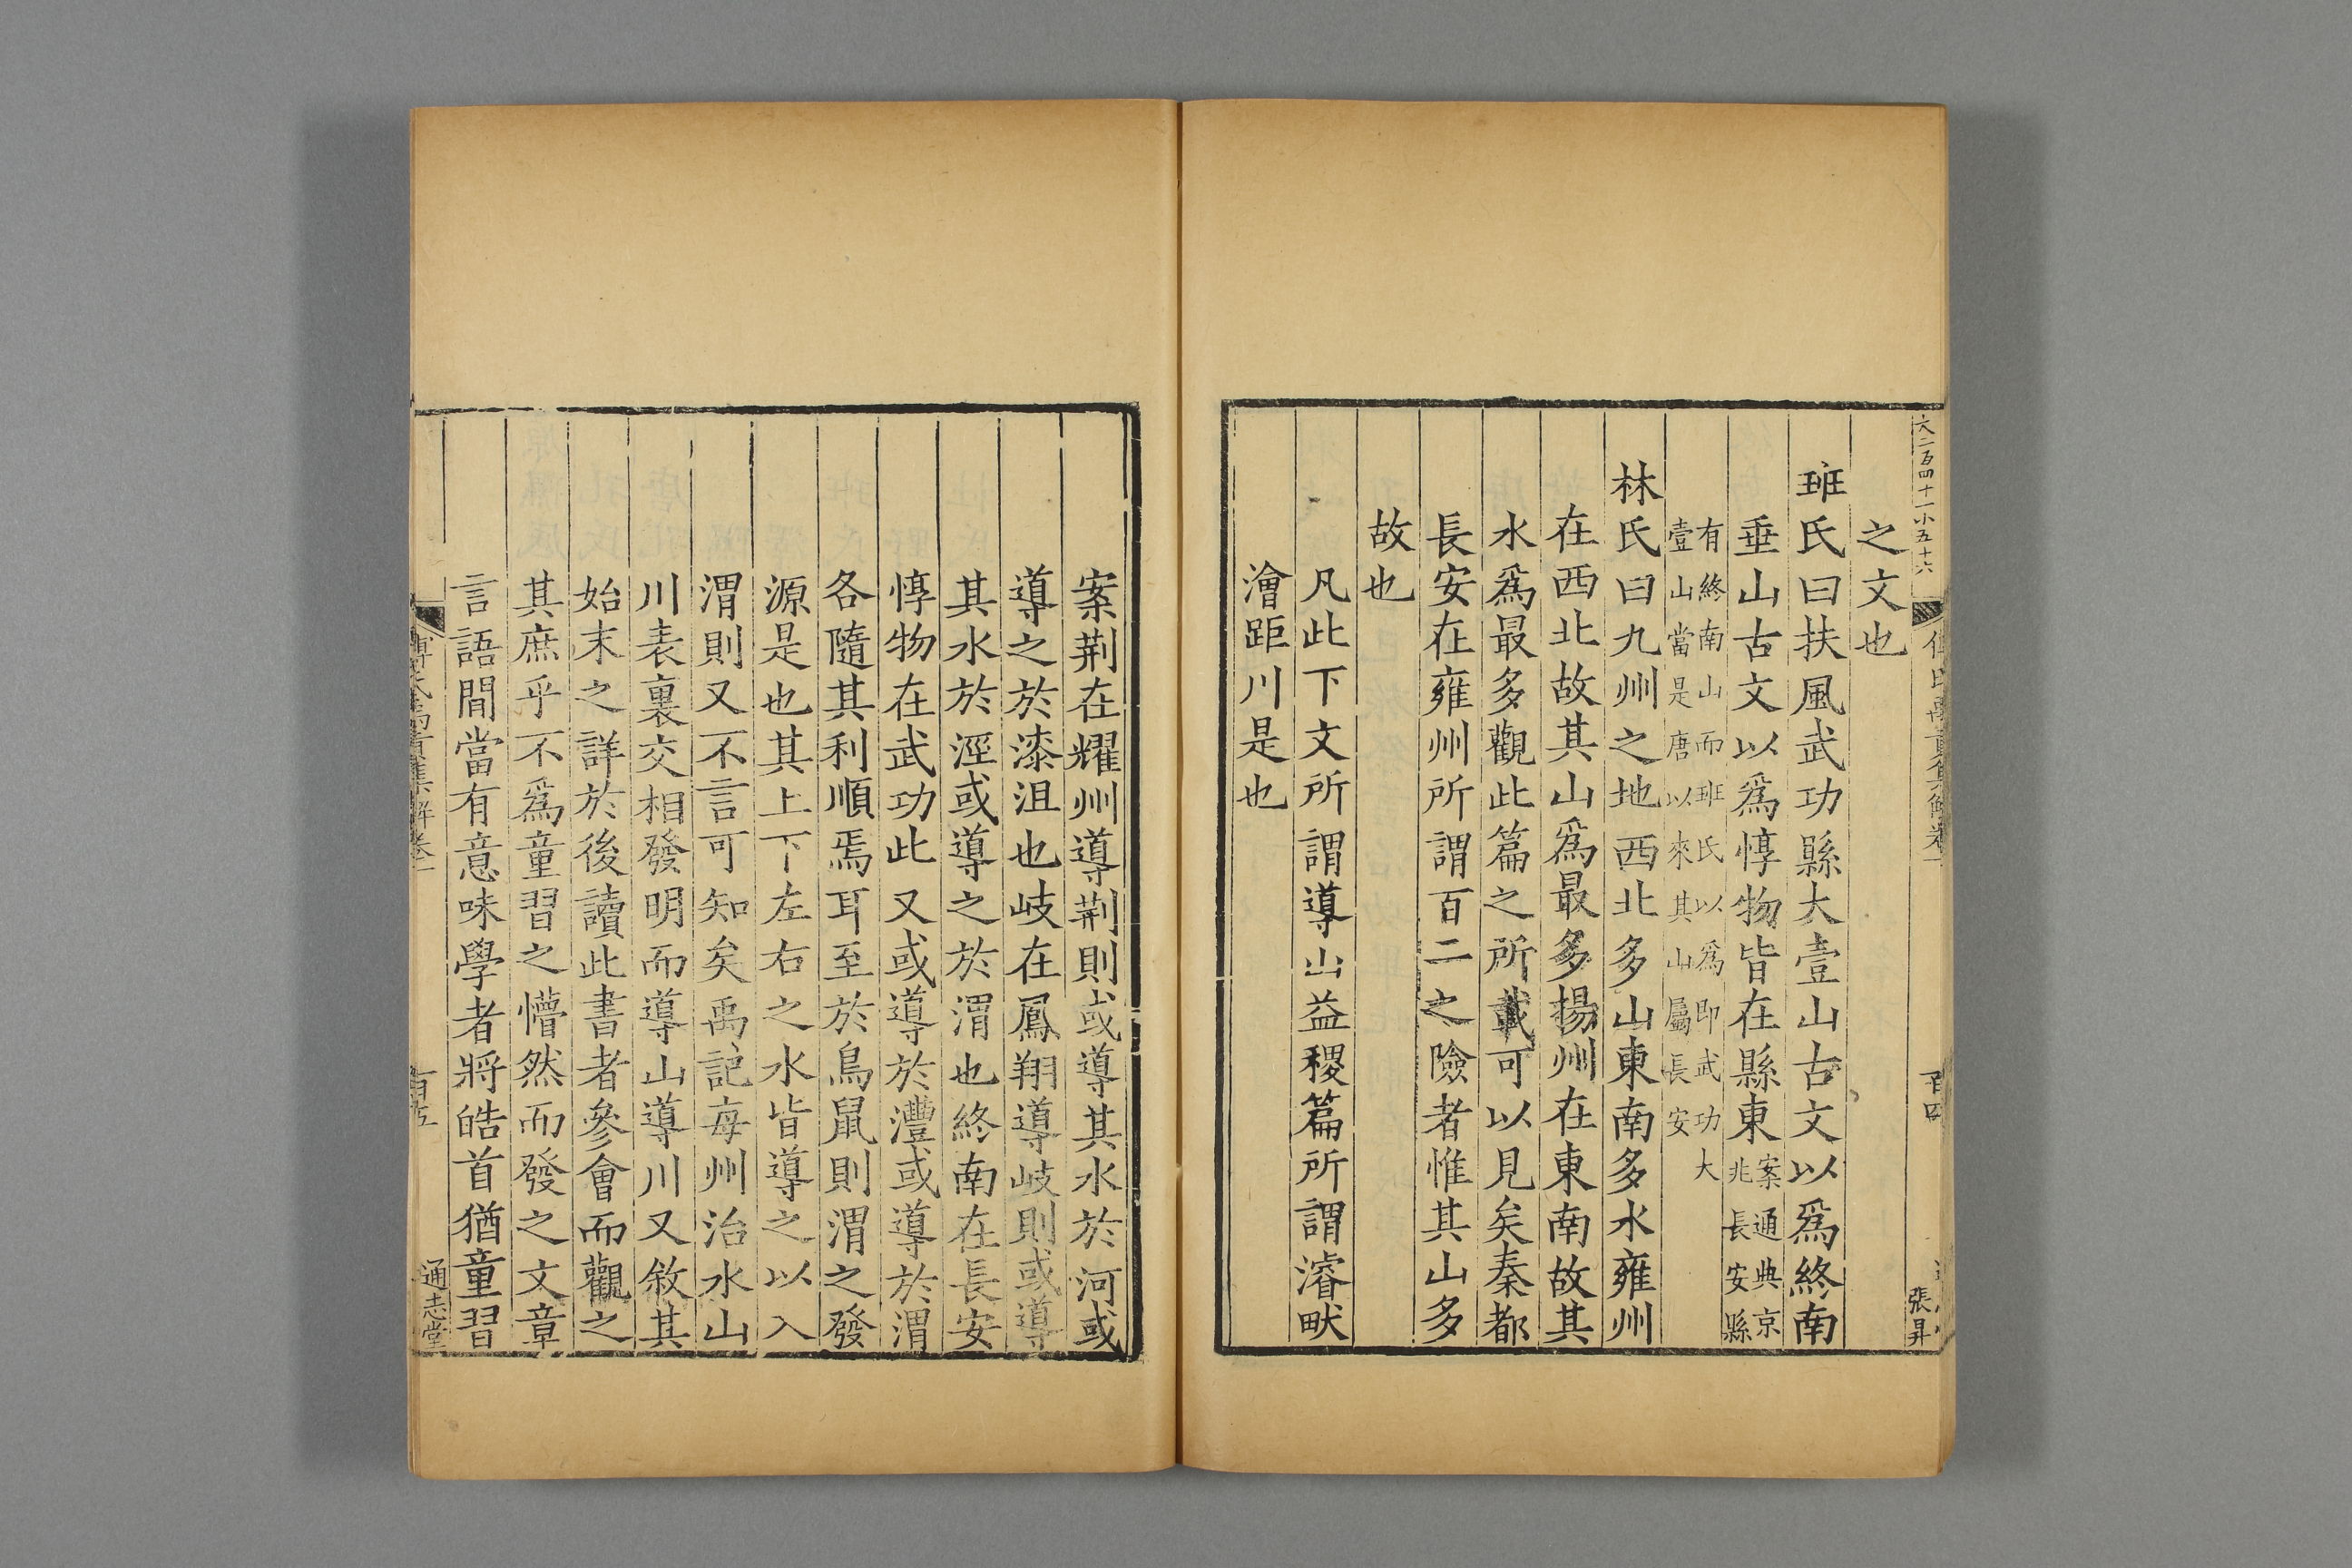 大二百四十一小五十六
傅氏禹貢集解卷一
百四
張昇
之文也
班氏曰扶風武功縣大壹山古文以爲終南
垂山古文以爲惇物皆在縣東案通典京
兆長安縣
有終南山而班氏以爲即武功大
壹山當是唐以來其山屬長安
林氏曰九州之地西北多山東南多水雍州
在西北故其山爲最多揚州在東南故其
水爲最多觀此篇之所載可以見矣秦都
長安在雍州所謂百二之險者惟其山多
故也
凡此下文所謂導山益稷篇所謂濬畎
澮距川是也
案荆在耀州導荆則或導其水於河或
導之於漆沮也岐在鳳翔導岐則或導
其水於涇或導之於渭也終南在長安
惇物在武功此又或導於灃或導於渭
各隨其利順焉耳至於鳥鼠則渭之發
源是也其上下左右之水皆導之以入
渭則又不言可知矣禹記每州治水山
川表裏交相發明而導山導川又敘其
始末之詳於後讀此書者參會而觀之
其庶乎不爲童習之懵然而發之文章
言語間當有意味學者將皓首猶童習
傅氏禹貢集解卷一
百五
通志堂